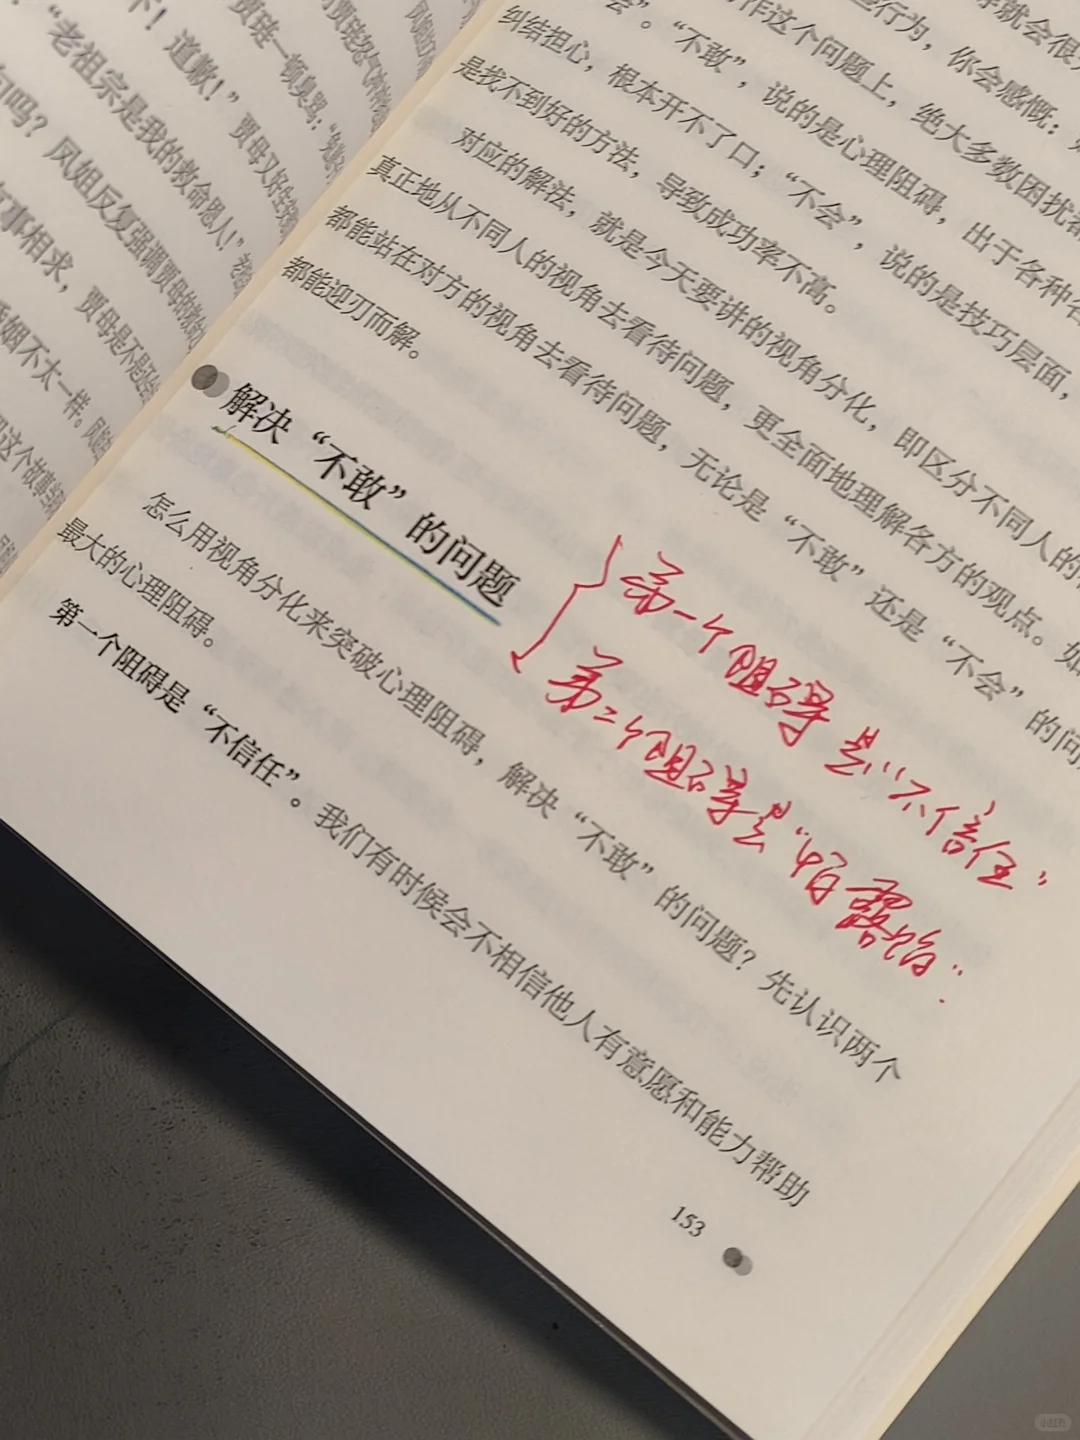 贾琏一顿臭骂：
下！道歉！”贾母又好生
“老祖宗是我的救命恩人！”
吗？凤姐反复强调贾母的救命
事相求，贾母是不是
婚姻不太一样。凤姐
这个故事
就会很
行为，你会感慨：
作这个问题上，绝大多数困扰都
会”。“不敢”，说的是心理阻碍，出于各种各
纠结担心，根本开不了口；“不会”，说的是技巧层面，
是找不到好的方法，导致成功率不高。
对应的解法，就是今天要讲的视角分化，即区分不同人的
真正地从不同人的视角去看待问题，更全面地理解各方的观点。如
都能站在对方的视角去看待问题，无论是“不敢”还是“不会”的问
都能迎刃而解。
解决“不敢”的问题
第一个阻碍是“不信任”
第二个阻碍是“怕露馅”
怎么用视角分化来突破心理阻碍，解决“不敢”的问题？先认识两个
最大的心理阻碍。
第一个阻碍是“不信任”。我们有时候会不相信他人有意愿和能力帮助
153
小红书